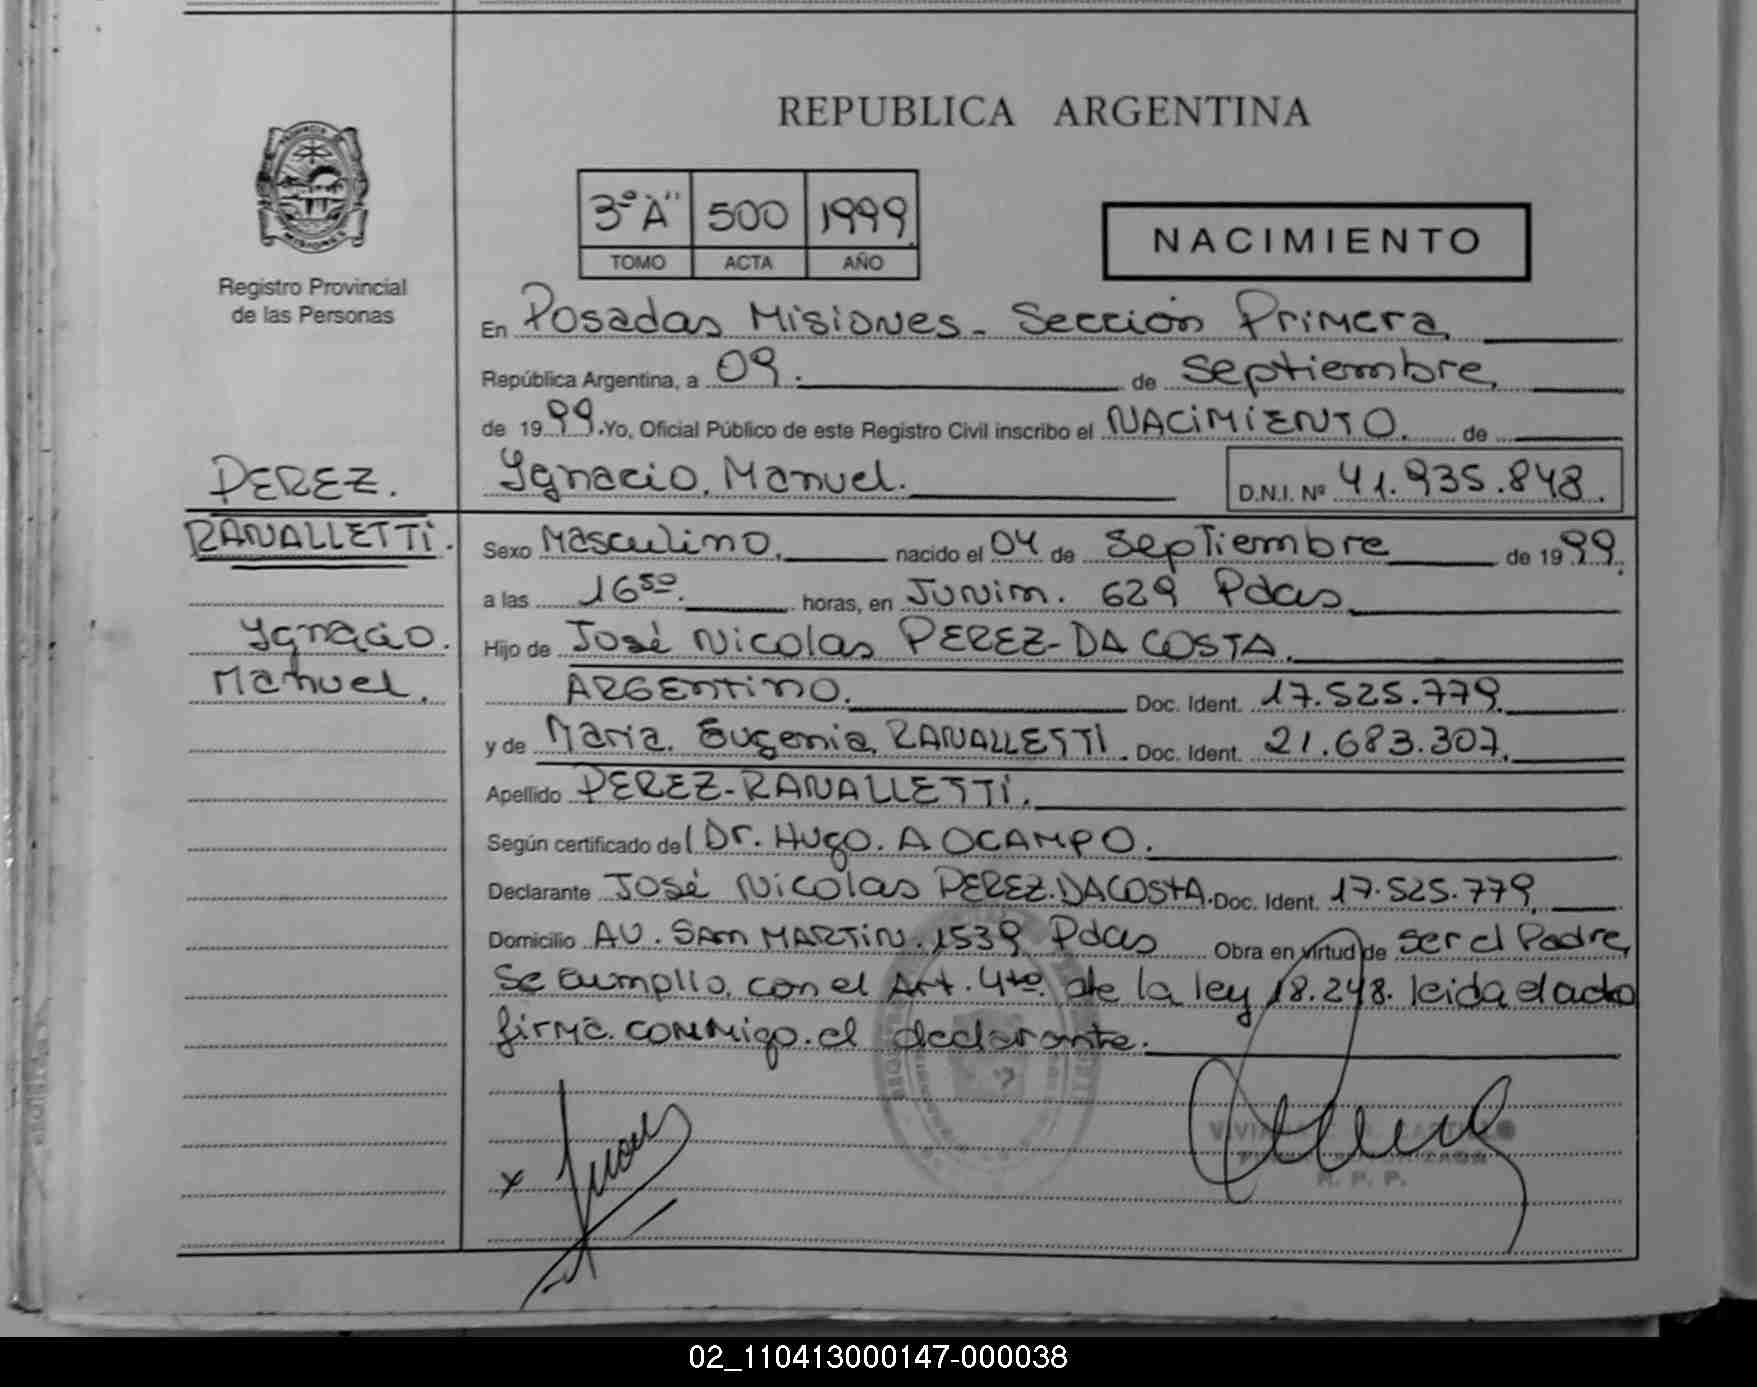 REPUBLICA ARGENTINA
3º "A" 500 1999
TOMO ACTA AÑO
NACIMIENTO
MISIONES
Registro Provincial
de las Personas
En Posadas Misiones - Sección Primera
República Argentina, a 09. de Septiembre,
de 1999. Yo, Oficial Público de este Registro Civil inscribo el NACIMIENTO. de
PEREZ.
Ygnacio, Manuel. D.N.I. Nº 41.935.848.
RANALLETTI.
Sexo Masculino, nacido el 04 de Septiembre de 1999.
a las 16 50. horas, en Junin. 629 Pdas
Ygnacio.
Hijo de José Nicolas PEREZ-DA COSTA.
Manuel.
ARGENTINO. Doc. Ident. 17.525.779.
y de Maria. Eugenia, RANALLETTI. Doc. Ident. 21.683.307.
Apellido PEREZ-RANALLETTI.
Según certificado del Dr. HUGO. A OCAMPO.
Declarante José Nicolas PEREZ.DACOSTA. Doc. Ident. 17.525.779
Domicilio AV. SAN MARTIN. 1539 Pdas Obra en virtud de ser el Padre,
Se cumplio, con el Art. 4to. de la ley 18.248. leida el acta
firma. conmigo. el declarante.
x
R. P. P.
02_110413000147-000038